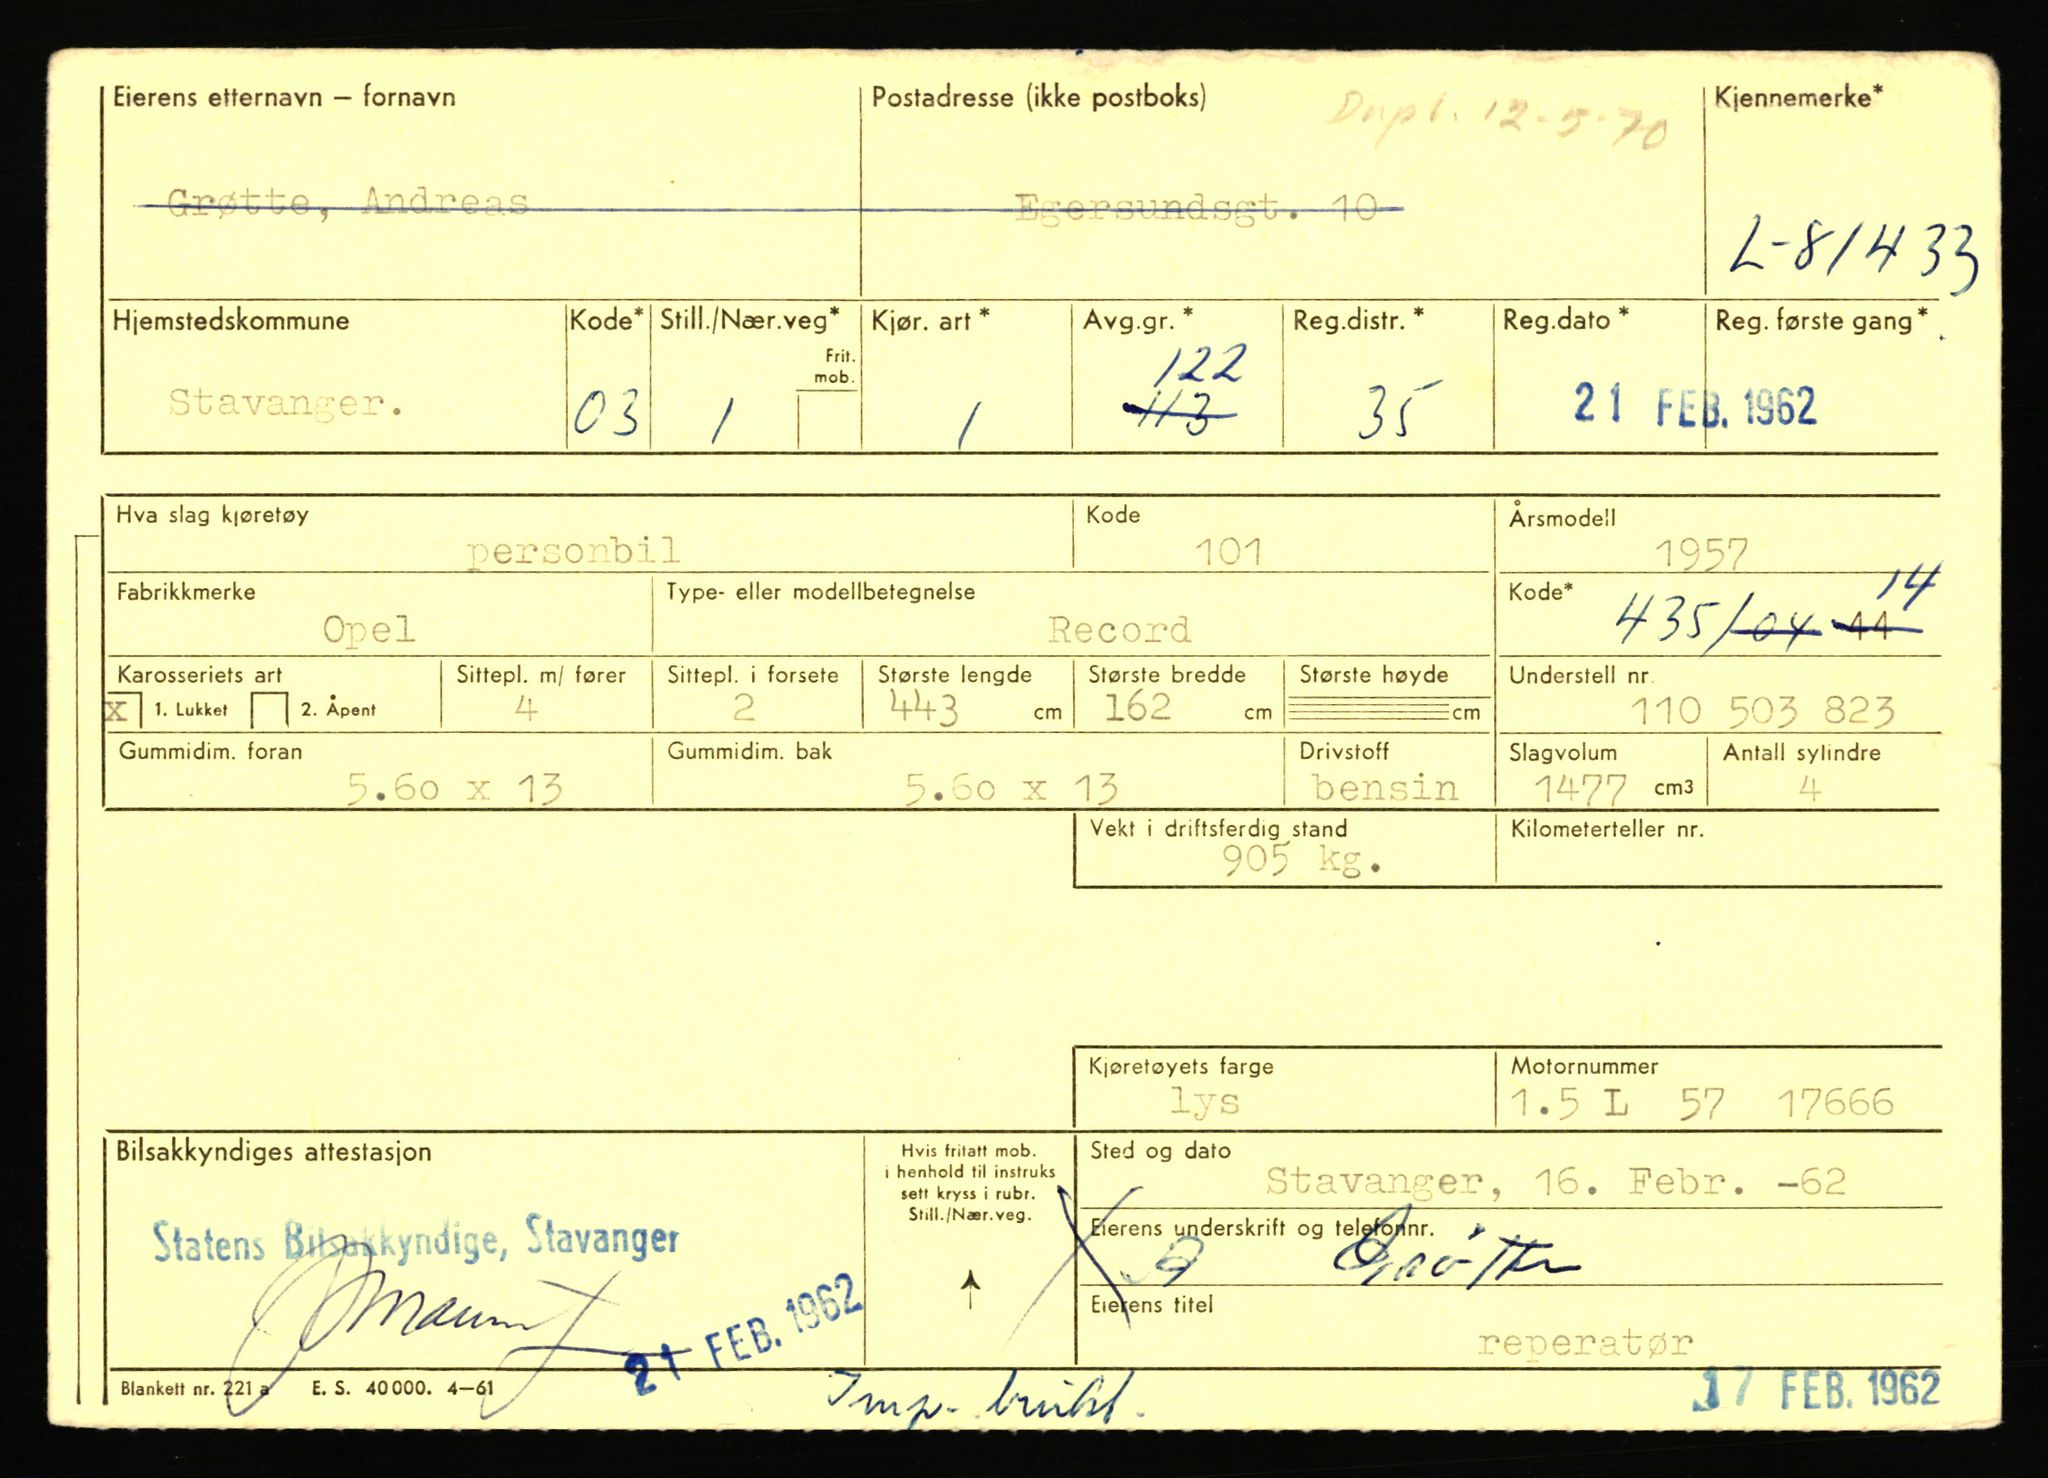 Eierens etternavn – fornavn Postadresse (ikke postboks) Dupl. 12-5-70 Kjennemerke*
Grøtte, Andreas Egersundsgt. 10
L-81433
Hjemstedskommune Kode* Still./Nær.veg* Kjør. art* Avg.gr.* Reg.distr.* Reg.dato* Reg. første gang*
Frit. mob. 122
Stavanger. 03 1 1 113 35 21 FEB. 1962
Hva slag kjøretøy Kode Årsmodell
personbil 101 1957
Fabrikkmerke Type- eller modellbetegnelse Kode* 14
Opel Record 435/04 44
Karosseriets art Sittepl. m/ fører Sittepl. i forsete Største lengde Største bredde Største høyde Understell nr.
x 1. Lukket 2. Åpent 4 2 443 cm 162 cm cm 110 503 823
Gummidim. foran Gummidim. bak Drivstoff Slagvolum Antall sylindre
5.60 x 13 5.60 x 13 bensin 1477 cm3 4
Vekt i driftsferdig stand Kilometerteller nr.
905 kg.
Kjøretøyets farge Motornummer
lys 1.5 L 57 17666
Bilsakkyndiges attestasjon Hvis fritatt mob. Sted og dato
i henhold til instruks
sett kryss i rubr. Stavanger, 16. Febr. -62
Still./Nær.veg.
Statens Bilsakkyndige, Stavanger Eierens underskrift og telefonnr.
A Grøtte
21 FEB. 1962 Eierens titel
reperatør
Blankett nr. 221 a E. S. 40000. 4–61 Imp. brukt. 17 FEB. 1962